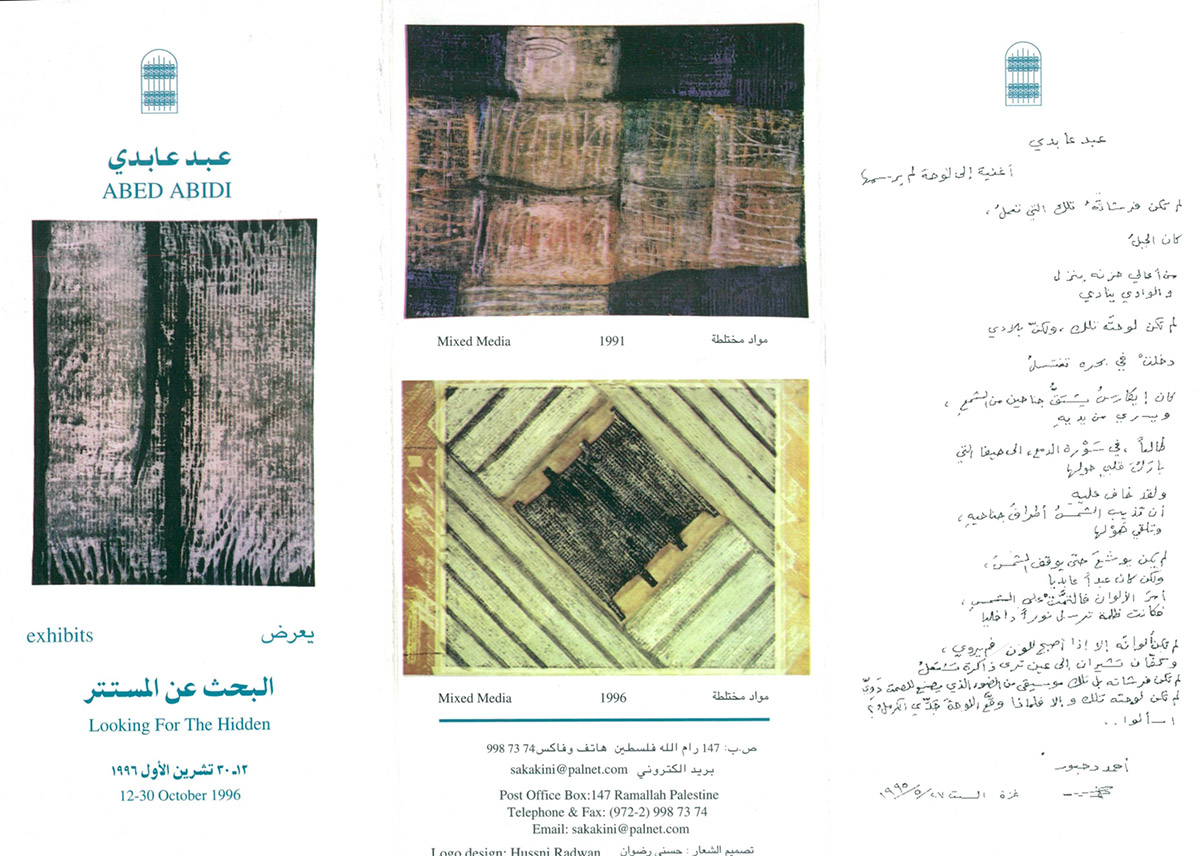 عبد عابدي
ABED ABIDI
exhibits يعرض
البحث عن المستتر
Looking For The Hidden
١٢ـ٣٠ تشرين الأول ١٩٩٦
12-30 October 1996
Mixed Media 1991 مواد مختلطة
Mixed Media 1996 مواد مختلطة
ص.ب: 147 رام الله فلسطين هاتف وفاكس 74 73 998
بريد الكتروني sakakini@palnet.com
Post Office Box:147 Ramallah Palestine
Telephone & Fax: (972-2) 998 73 74
Email: sakakini@palnet.com
Logo design: Hussni Radwan تصميم الشعار : حسني رضوان
عبد عابدي
أغنية إلى لوحة لم يرسمها
لم تكن فرشاتهُ تلك التي تعملُ،
كان الجبلُ
من أعالي حزنه ينزل
والوادي ينادي
لم تكن لوحته تلك، ولكنّ بلادي
دخلتْ في بحره تغتسلُ
كان إيكاروسُ يشتقُّ جناحين من الشمع،
ويسري من يديهِ
طالعاً، في سَوْرة الدمع، الى حيفا التي
بارك قلبي حولها
ولقد خاف عليهِ
أن تذيب الشمسُ أطرافَ جناحيهِ،
وتلقي هَوْلها
لم يكن يوشعَ حتى يوقف الشمسَ،
ولكن كان عبداً عابدياً
أمرَ الألوان فالتمّتْ على الشمس،
فكانت ظلمة ترسل نوراً داخلياً
لم تكن ألوانه إلا إذا أصبح للون فم يروي،
وكفّان تشيران إلى عين ترى ذاكرة تشتعلُ
لم تكن فرشاته بل تلك موسيقى من الضوء الذي يصنع للصمت دَوِيّ
لم تكن لوحته تلك وإلا فلماذا وقّع اللوحةَ جَدّي الكرملُ؟
اسألوا..
أحمد دحبور
غزة السبت ٢٧/٥/١٩٩٥